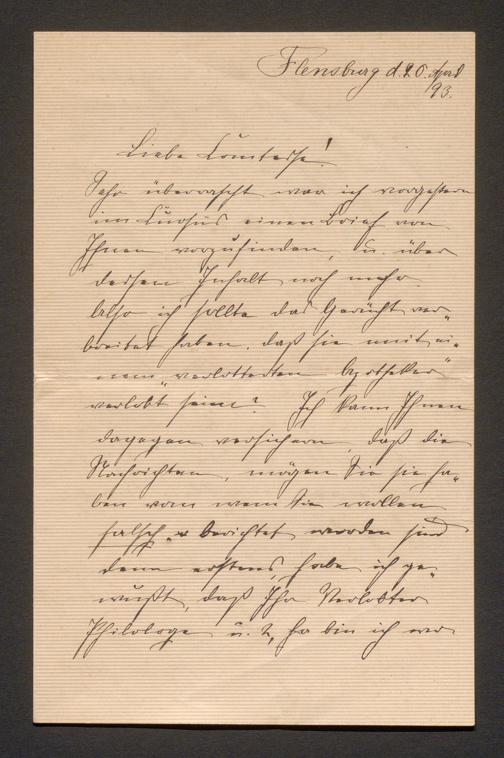 Flensburg d. 20. April
93.
Liebe Comtesse!
Sehr überrascht war ich vorgestern
im Cursus einen Brief von
Ihnen vorzufinden, u. über
dessen Inhalt noch mehr.
Also ich sollte das Gerücht ver-
breitet haben, daß sie mit ei-
nem "verlotterten Apotheker"
verlobt seien? Ich kann Ihnen
dagegen versichern, daß die
Nachrichten, mögen Sie sie ha-
ben von wem Sie wollen
falsch berichtet worden sind
denn erstens, habe ich ge-
wußt, daß Ihr Verlobter
Philologe u. 2, bin ich